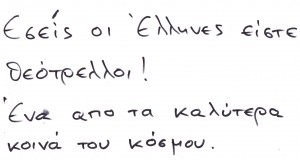 Εσείς οι Έλληνες είστε
θεότρελλοι!
Ένα απο τα καλύτερα
κοινά του κόσμου.